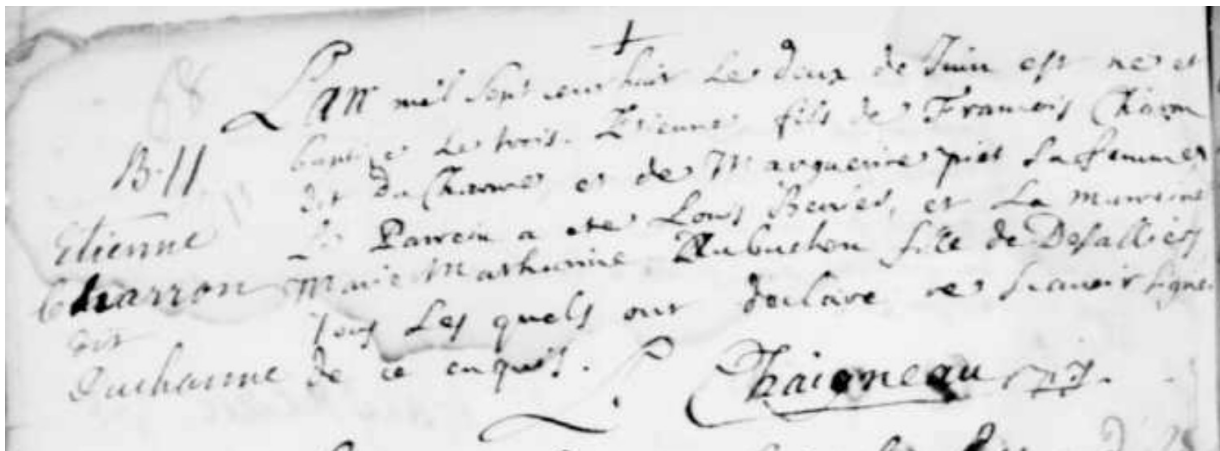 B.11
Etienne
Charron
dit
Ducharme
L'an mil sept cens huit le deux de Juin est ne et
baptize le trois. Etienne fils de Francois Charon
dit du Charme et de Marguerite piet sa femme
Le Parrein a ete Louis et la Marreine
Marie Mathurine Aubuchon fille de Desalliers
tous les quels ont declare ne scavoir signer
de ce enquis.
L. Chaigneau